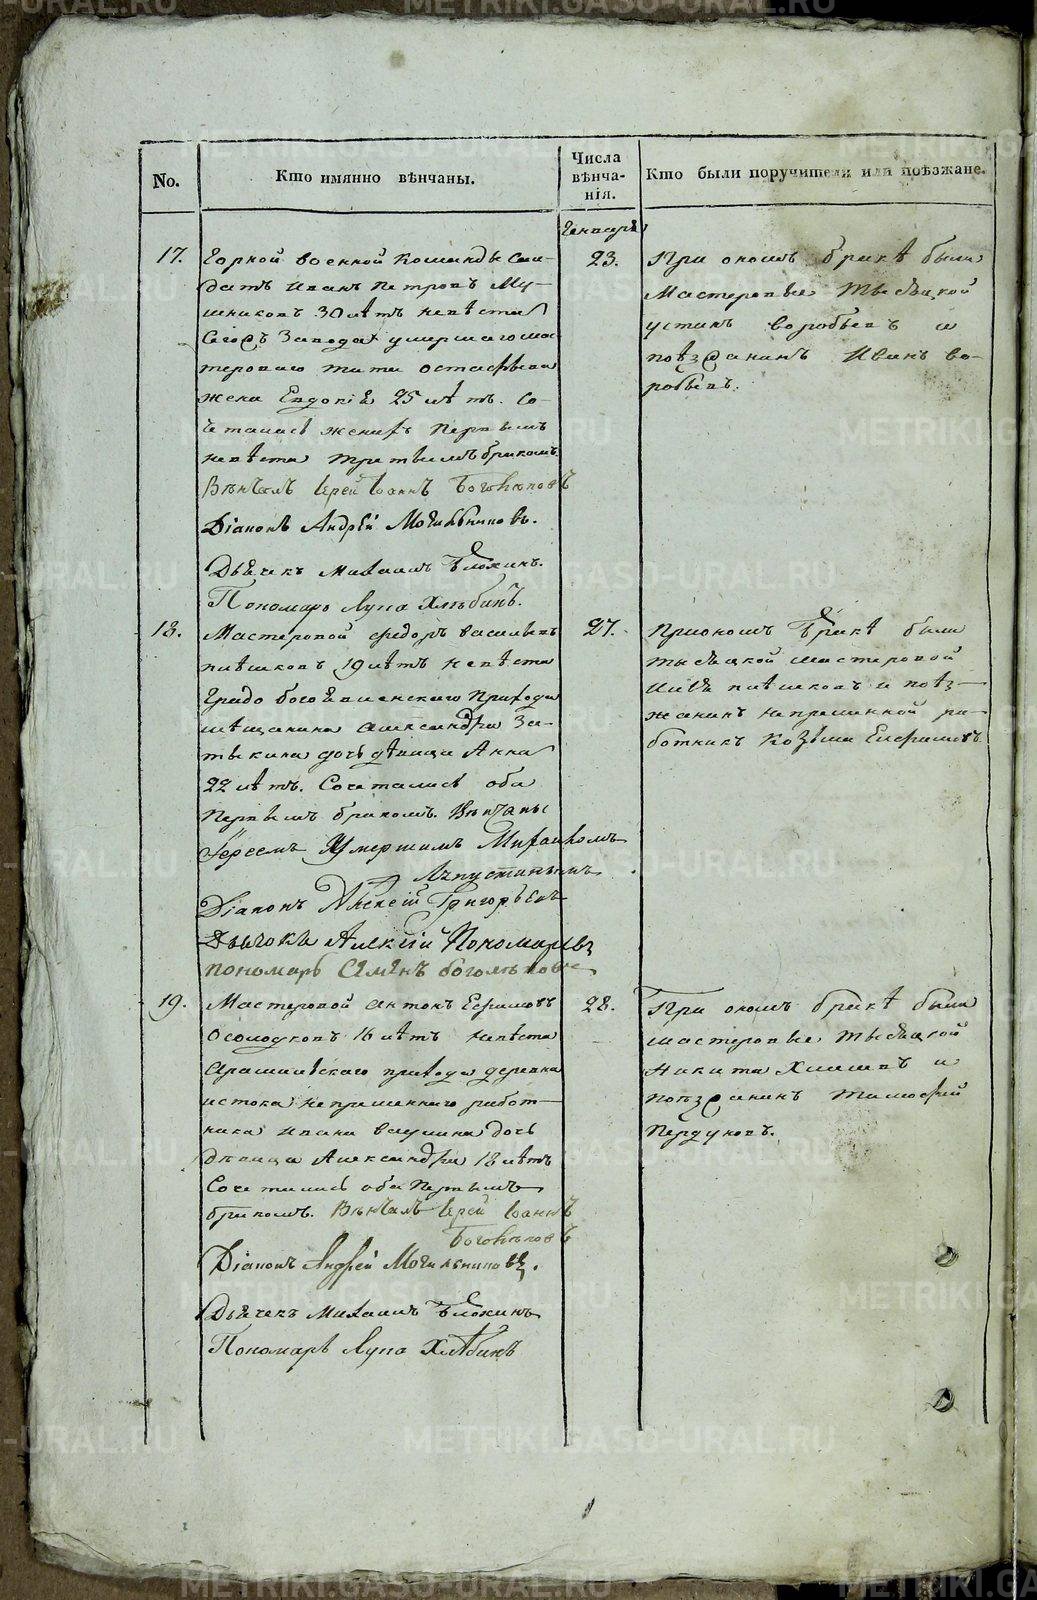 No.
Кто имянно вѣнчаны.
Числа
вѣнча-
нія.
Кто были поручители или поѣзжане.
Генваря
17.
Горной военной Команды Сол-
датъ Иванъ Петровъ Му-
шниковъ 30 лѣтъ невѣста
Сегожъ Завода умершаго мас
тероваго Тита Остафьева
жена Евдокія 25 лѣтъ. Со-
четались женихъ первымъ
невѣста третьимъ бракомъ.
Вѣнчалъ Іерей Іоаннъ
Діаконъ Андрей Могильниковъ.
Дьячекъ Михаилъ Блохинъ.
Пономарь Лупа Хлѣбинъ.
23.
При ономъ бракѣ были
Мастеровые Тысяцкой
устинъ воробьевъ и
поѣзжанинъ Иванъ во-
робьевъ.
18.
Мастеровой федоръ васильевъ
пѣшковъ 19 лѣтъ невѣста
Градо богоявленскаго прихода
мѣщанина александра За-
тыкина дочь дѣвица Анна
22 лѣтъ. Сочетались оба
первымъ бракомъ. Вѣнчаны
Іереемъ Умершимъ Михаиломъ
Діаконъ Алексій Григорьевъ
Дьячокъ Алексій Пономаревъ
пономарь Семенъ
27.
При ономъ бракѣ были
тысяцкой мастеровой
Илья пѣшковъ и поѣз-
жанинъ непремѣнной ра-
ботникъ Козьма Ефимовъ
19.
Мастеровой антонъ Ефимовъ
Осолодковъ 16 лѣтъ невѣста
Арамильскаго прихода деревни
истока непремѣннаго работ-
ника ивана ваулина дочь
дѣвица Александра 18 лѣтъ
Сочетались оба первымъ
бракомъ. Вѣнчалъ Іерей Іоаннъ
Діаконъ Андрей Могильниковъ.
Дьячекъ Михаилъ Блохинъ
Пономарь Лупа Хлѣбинъ
28.
При ономъ бракѣ были
мастеровые тысяцкой
Никита Хмелевъ и
поѣзжанинъ тимофей
Пердуновъ.
METRIKI.GASO-URAL.RU